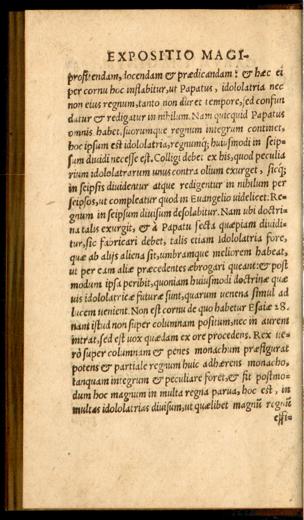 EXPOSITIO MAGI-
profitendam, docendam & prædicandam: & hæc ei
per cornu hoc inſtabitur, ut Papatus, idololatria nec
non eius regnum, tanto non duret tempore, ſed confun
datur & redigatur in nihilum. Nam quicquid Papatus
omnis habet. ſuorumque regnum integrum continet,
hoc ipſum eſt idololatria, regnumq; huiuſmodi in ſeip-
ſum diuidi neceſſe eſt. Colligi debet ex his, quod peculia
rium idololatrarum unus contra olium exurget, ſicq;
in ſeipſis diuidentur atque redigentur in nihilum per
ſeipſos, ut compleatur quod in Euangelio uidelicet: Re-
gnum in ſeipſum diuiſum deſolabitur. Nam ubi doctri-
na talis exurgit, & à Papatu ſecta quæpiam diuidi-
tur, ſic fabricari debet, talis etiam Idololatria fore,
quæ ab alijs aliena ſit, umbramque meliorem habeat,
ut per eam aliæ præcedentes abrogari queant: & poſt
modum ipſa peribit, quoniam huiuſmodi doctrinæ quæ
uis idololatricæ futuræ ſunt, quarum uenena ſimul ad
lucem uenient. Non eſt cornu de quo habetur Eſaiæ 28.
nam iſtud non ſuper columnam poſitum, nec in aurem
intrat, ſed eſt uox quædam ex ore procedens. Rex ue-
rò ſuper columnam & penes monachum præfigurat
potens & partiale regnum huic adhærens monacho,
tanquam integrum & peculiare foret, & ſit poſtmo-
dum hoc magnum in multa regna parua, hoc eſt, in
multas idololatrias diuiſum, ut quælibet magnũ regnũ
eſſi-